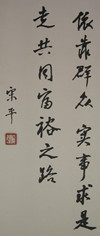 依靠群众实事求是
走共同富裕之路
宋平